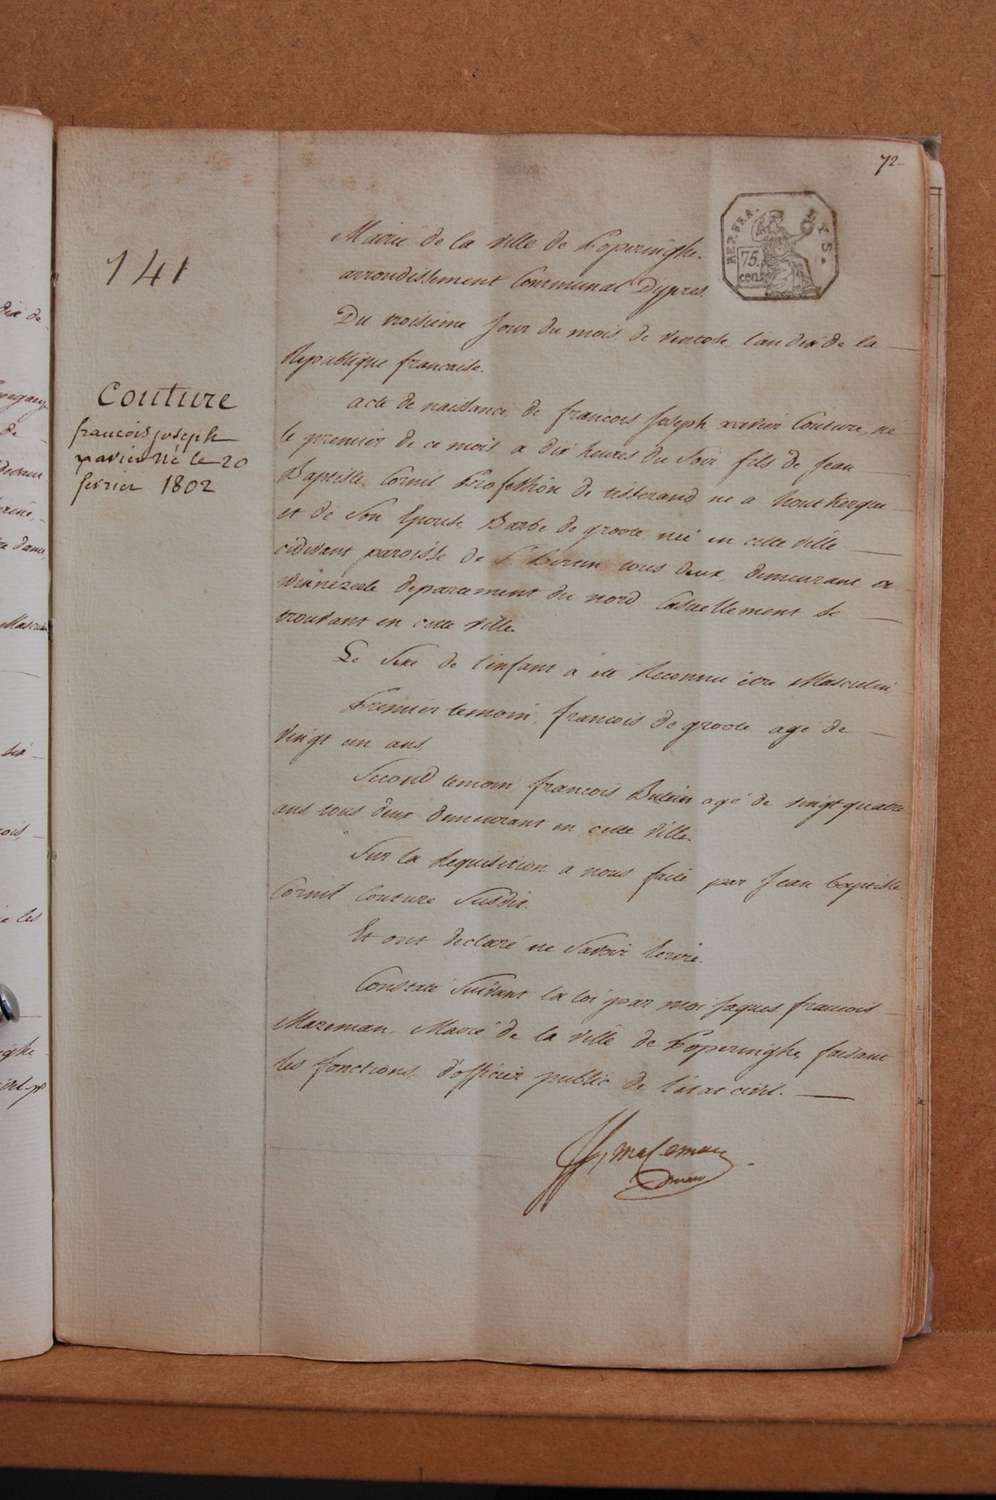 72
REP. FRA.
75.
cent.
T. S.
141
Couture
francois joseph
xavier né le 20
fevrier 1802
Mairie de la ville de Poperinghe.
arrondissement Communal Dypres.
Du troisieme jour du mois de ventose l'an dix de la
Republique francaise.
acte de naissance de francois Joseph xavier Couture, ne
le premier de ce mois a dix heures du Soir fils de Jean
Baptiste Cornil Profession de tisserand ne a houtkerque
et de Son Epouse Barbe de groote née en cette ville
cidevant paroisse de St Bertin tous deux demeurant a
winnezeele departement du nord Casuellement se
trouvant en cette ville.
Le Sexe de l'infant a été Reconnu être Masculin
Premier temoin, francois de groote agé de
vingt un ans
Second temoin francois agé de vingt quatre
ans tous deux demeurant en cette ville.
Sur la Requisition a nous faite par Jean baptiste
Cornil Couture Susdit.
Et ont declaré ne Savoir Ecrire.
Constaté Suivant la loi par moi Jaques francois
Mazeman Maire de la ville de Poperinghe, faisant
les fonctions d'officier public de l'etat civil.
Mazeman